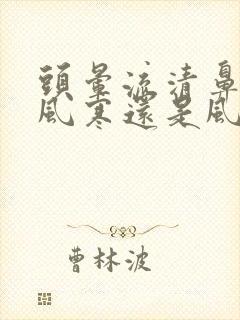 頭暈流清鼻
風寒還是風
曹林波